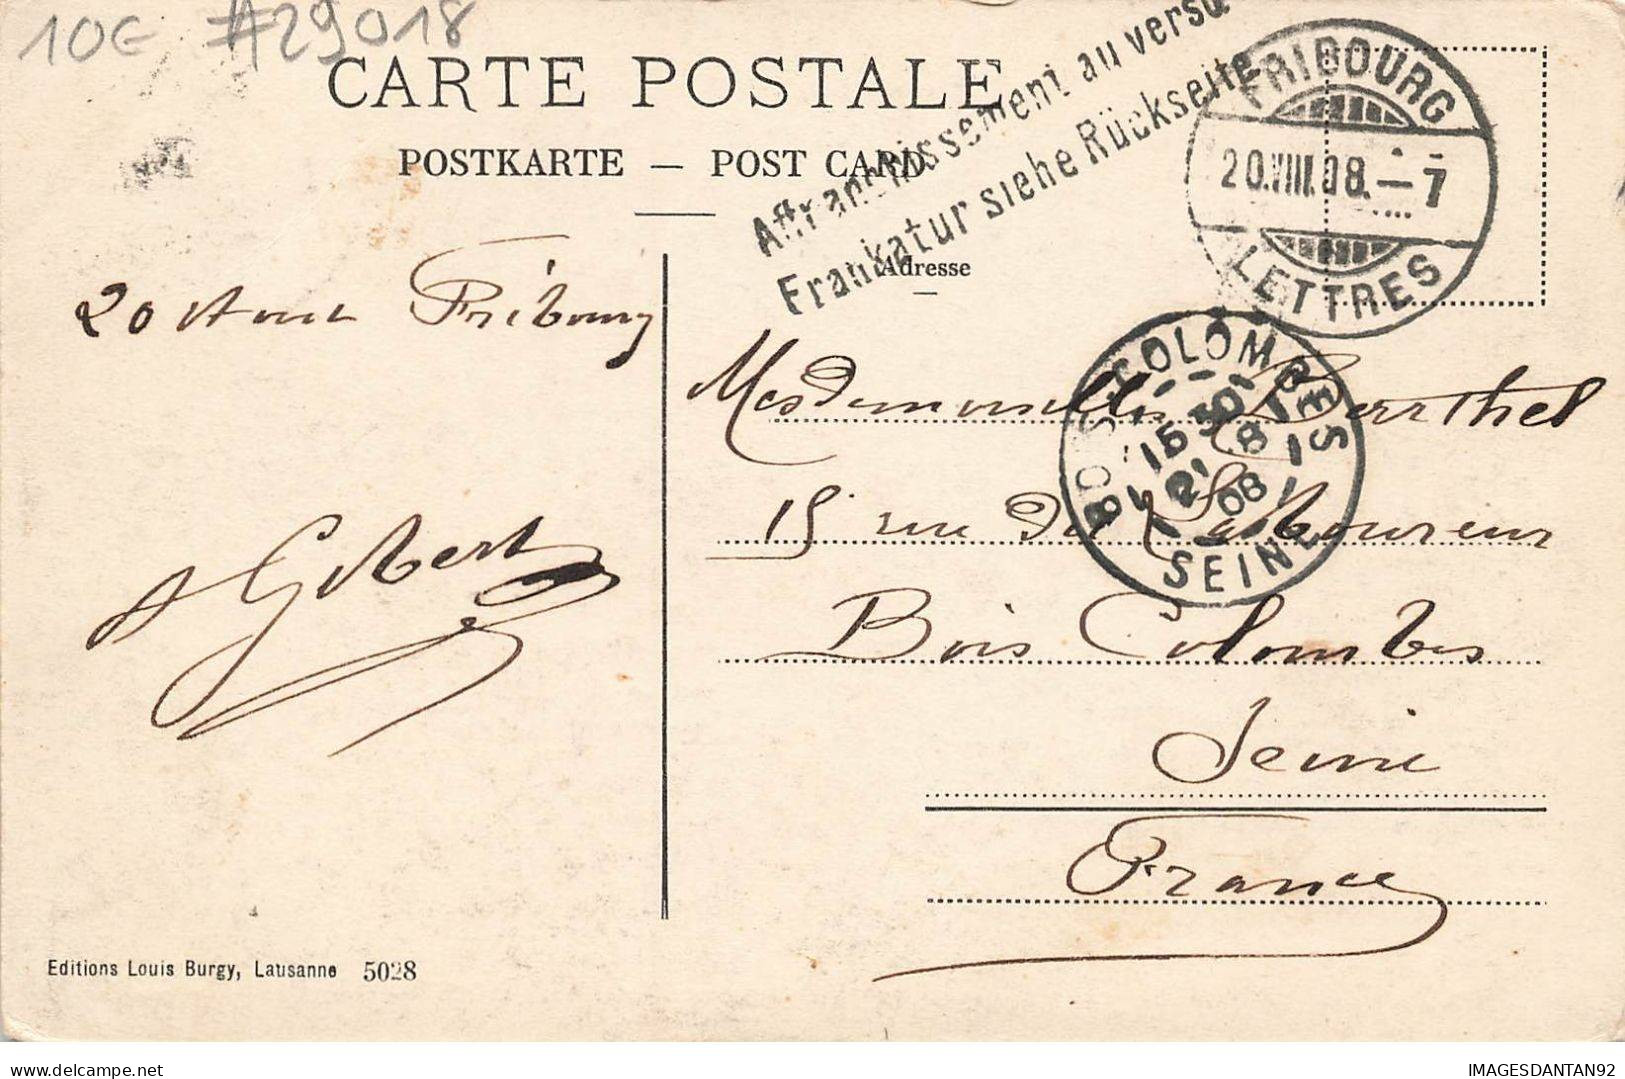 10€ #29018
CARTE POSTALE
POSTKARTE — POST CARD
Affranchissement au verso
Frankatur siehe Rückseite
FRIBOURG
20.VIII.08.—7
LETTRES
Adresse
20 Aout Fribourg
BOIS-COLOMBES
15 30
21 8
08
SEINE
Mesdemoiselles Berthel
15 rue du Laboureur
Bois Colombes
Seine
France
A Gibert
Editions Louis Burgy, Lausanne 5028
IMAGESDANTAN92